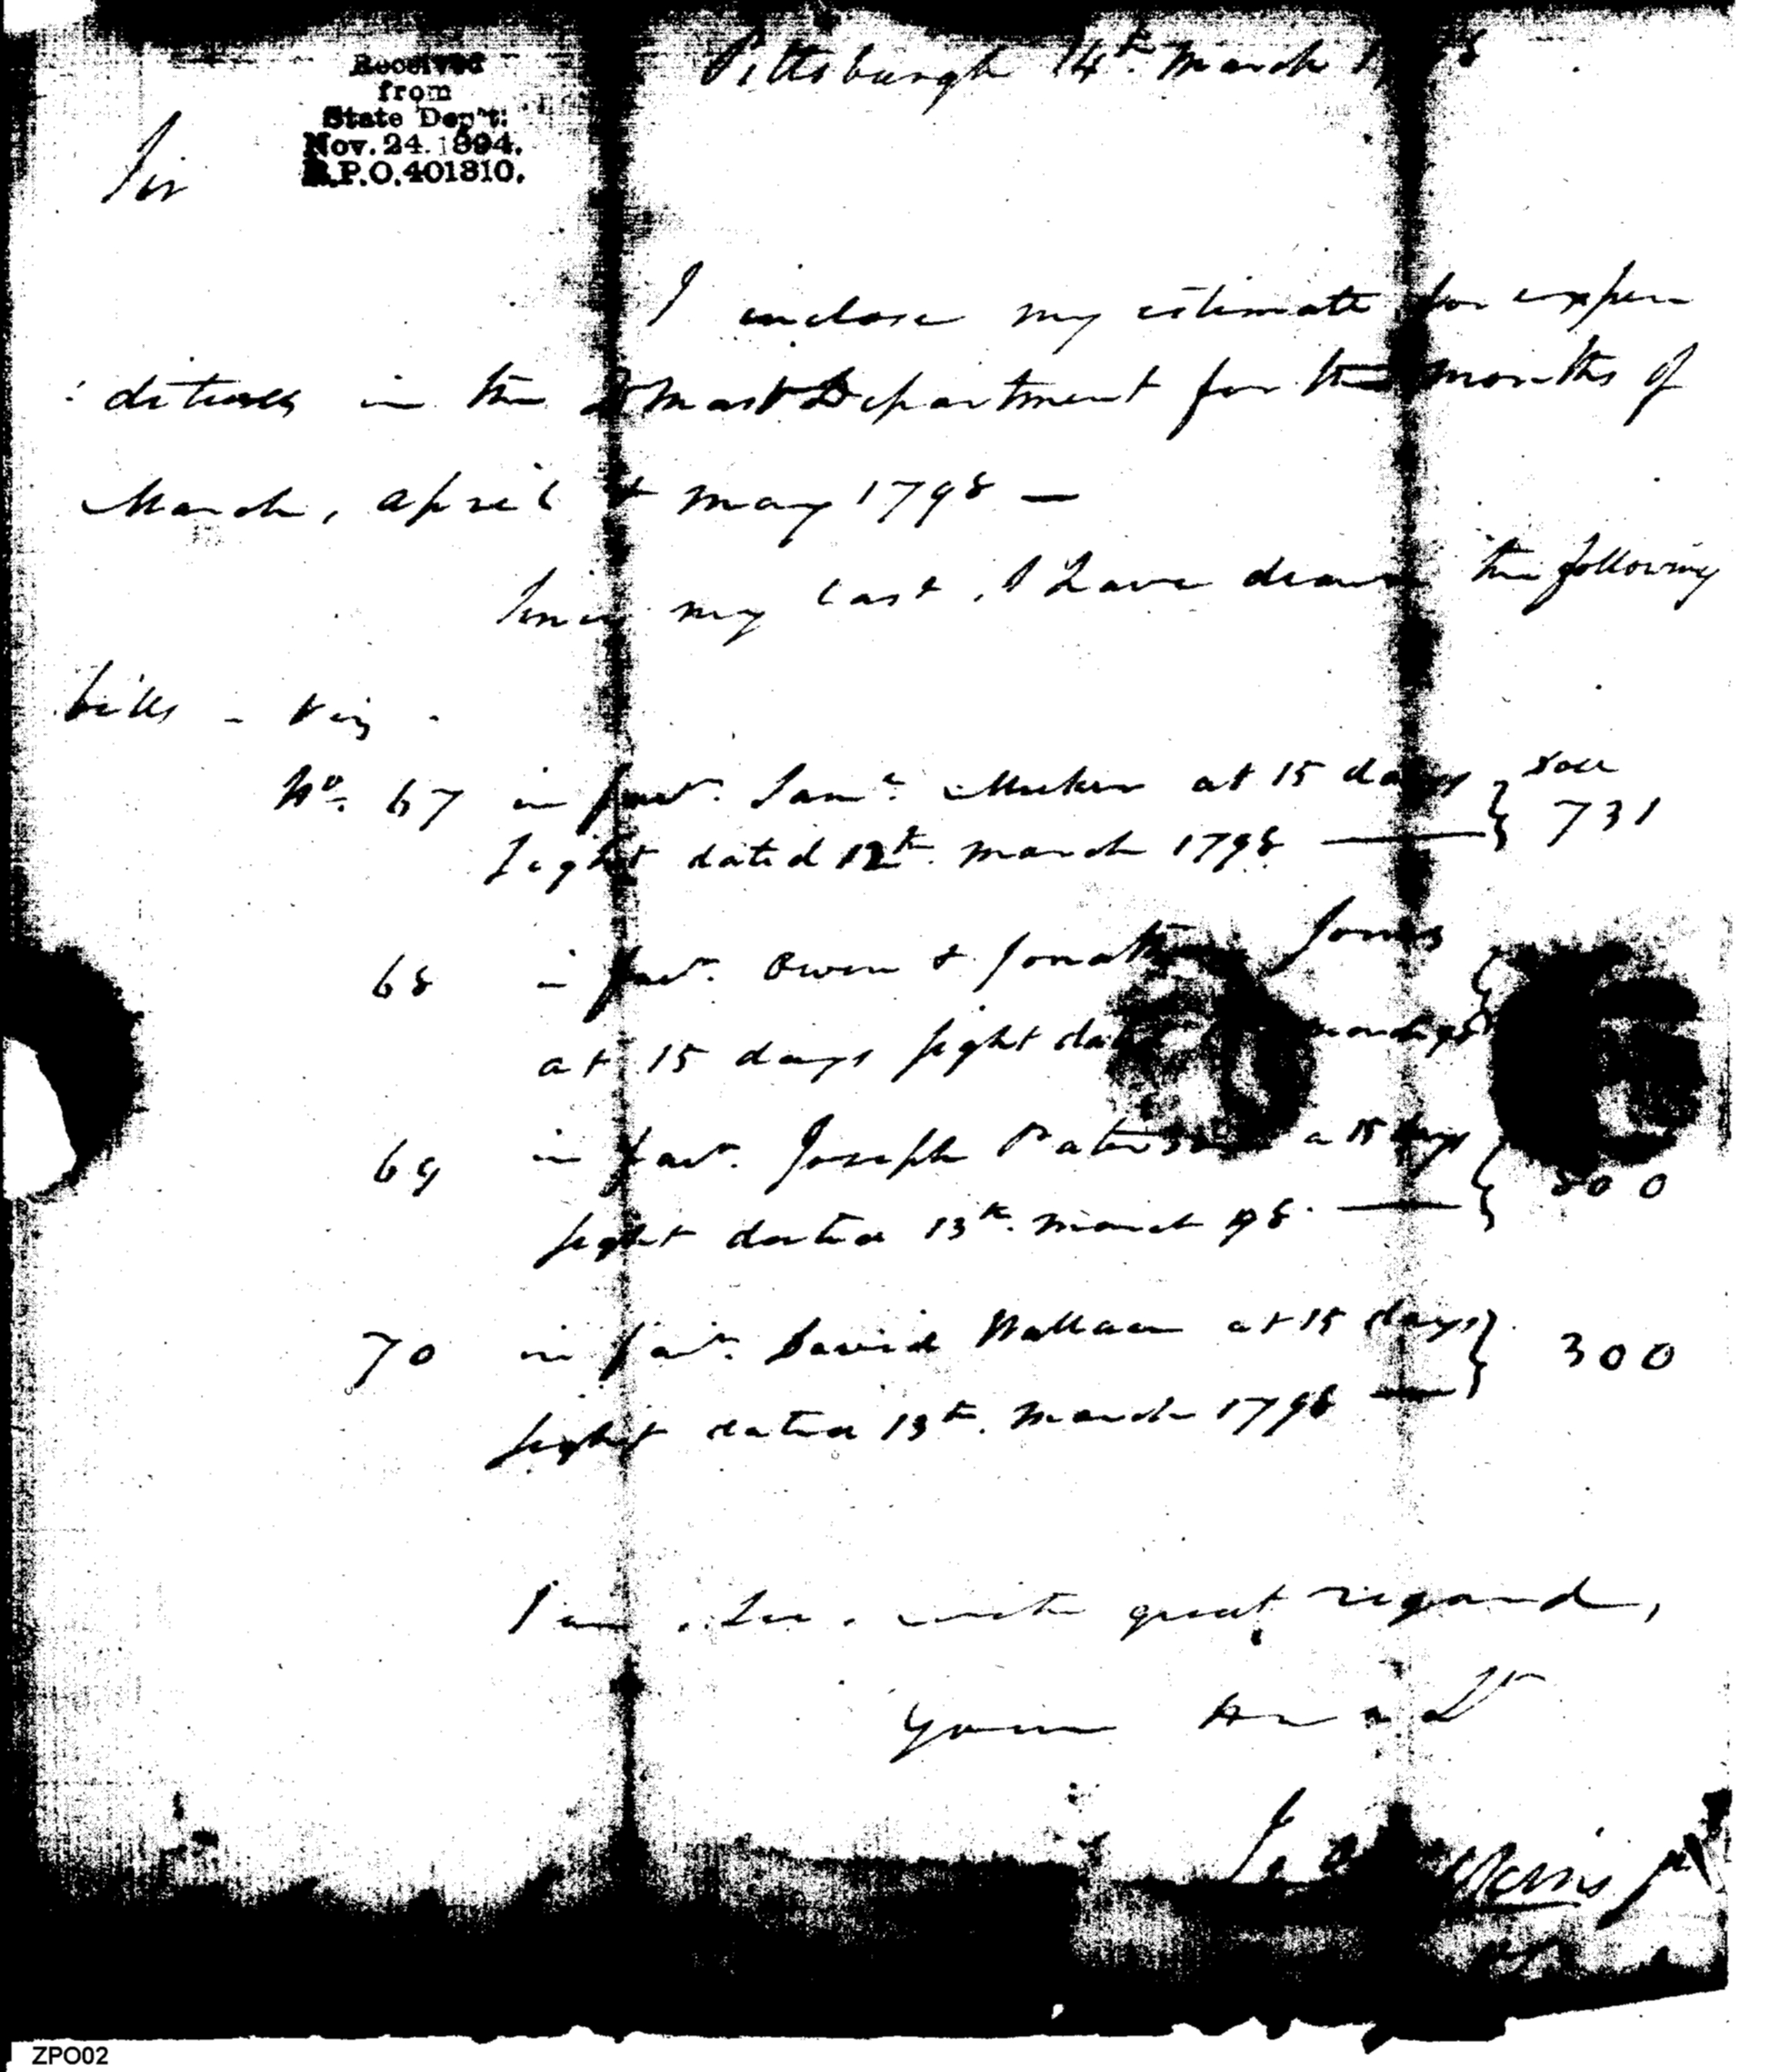 Received
from
State Dep't:
Nov. 24. 1894.
R.P.O. 401310.
Pittsburgh 14th. March
Sir
I inclose my estimate for expen
: ditures in the Qr Mastr Department for the months of
March, april & may 1798 —
Since my last, I have drawn the following
bills - viz -
No. 67 in favr. Saml. Meeker at 15 days
Doll
731
Sight dated 12th. march 1798
68 in favr. Owen & Jonathan Jones
at 15 days sight dated
69 in favr. Joseph Paterson a 15 days
sight dated 13th. march 98.
70 in favr. David Wallace at 15 days
300
sight dated 13th. March 1798
I am, Sir, with great regard,
Your
ZPO02